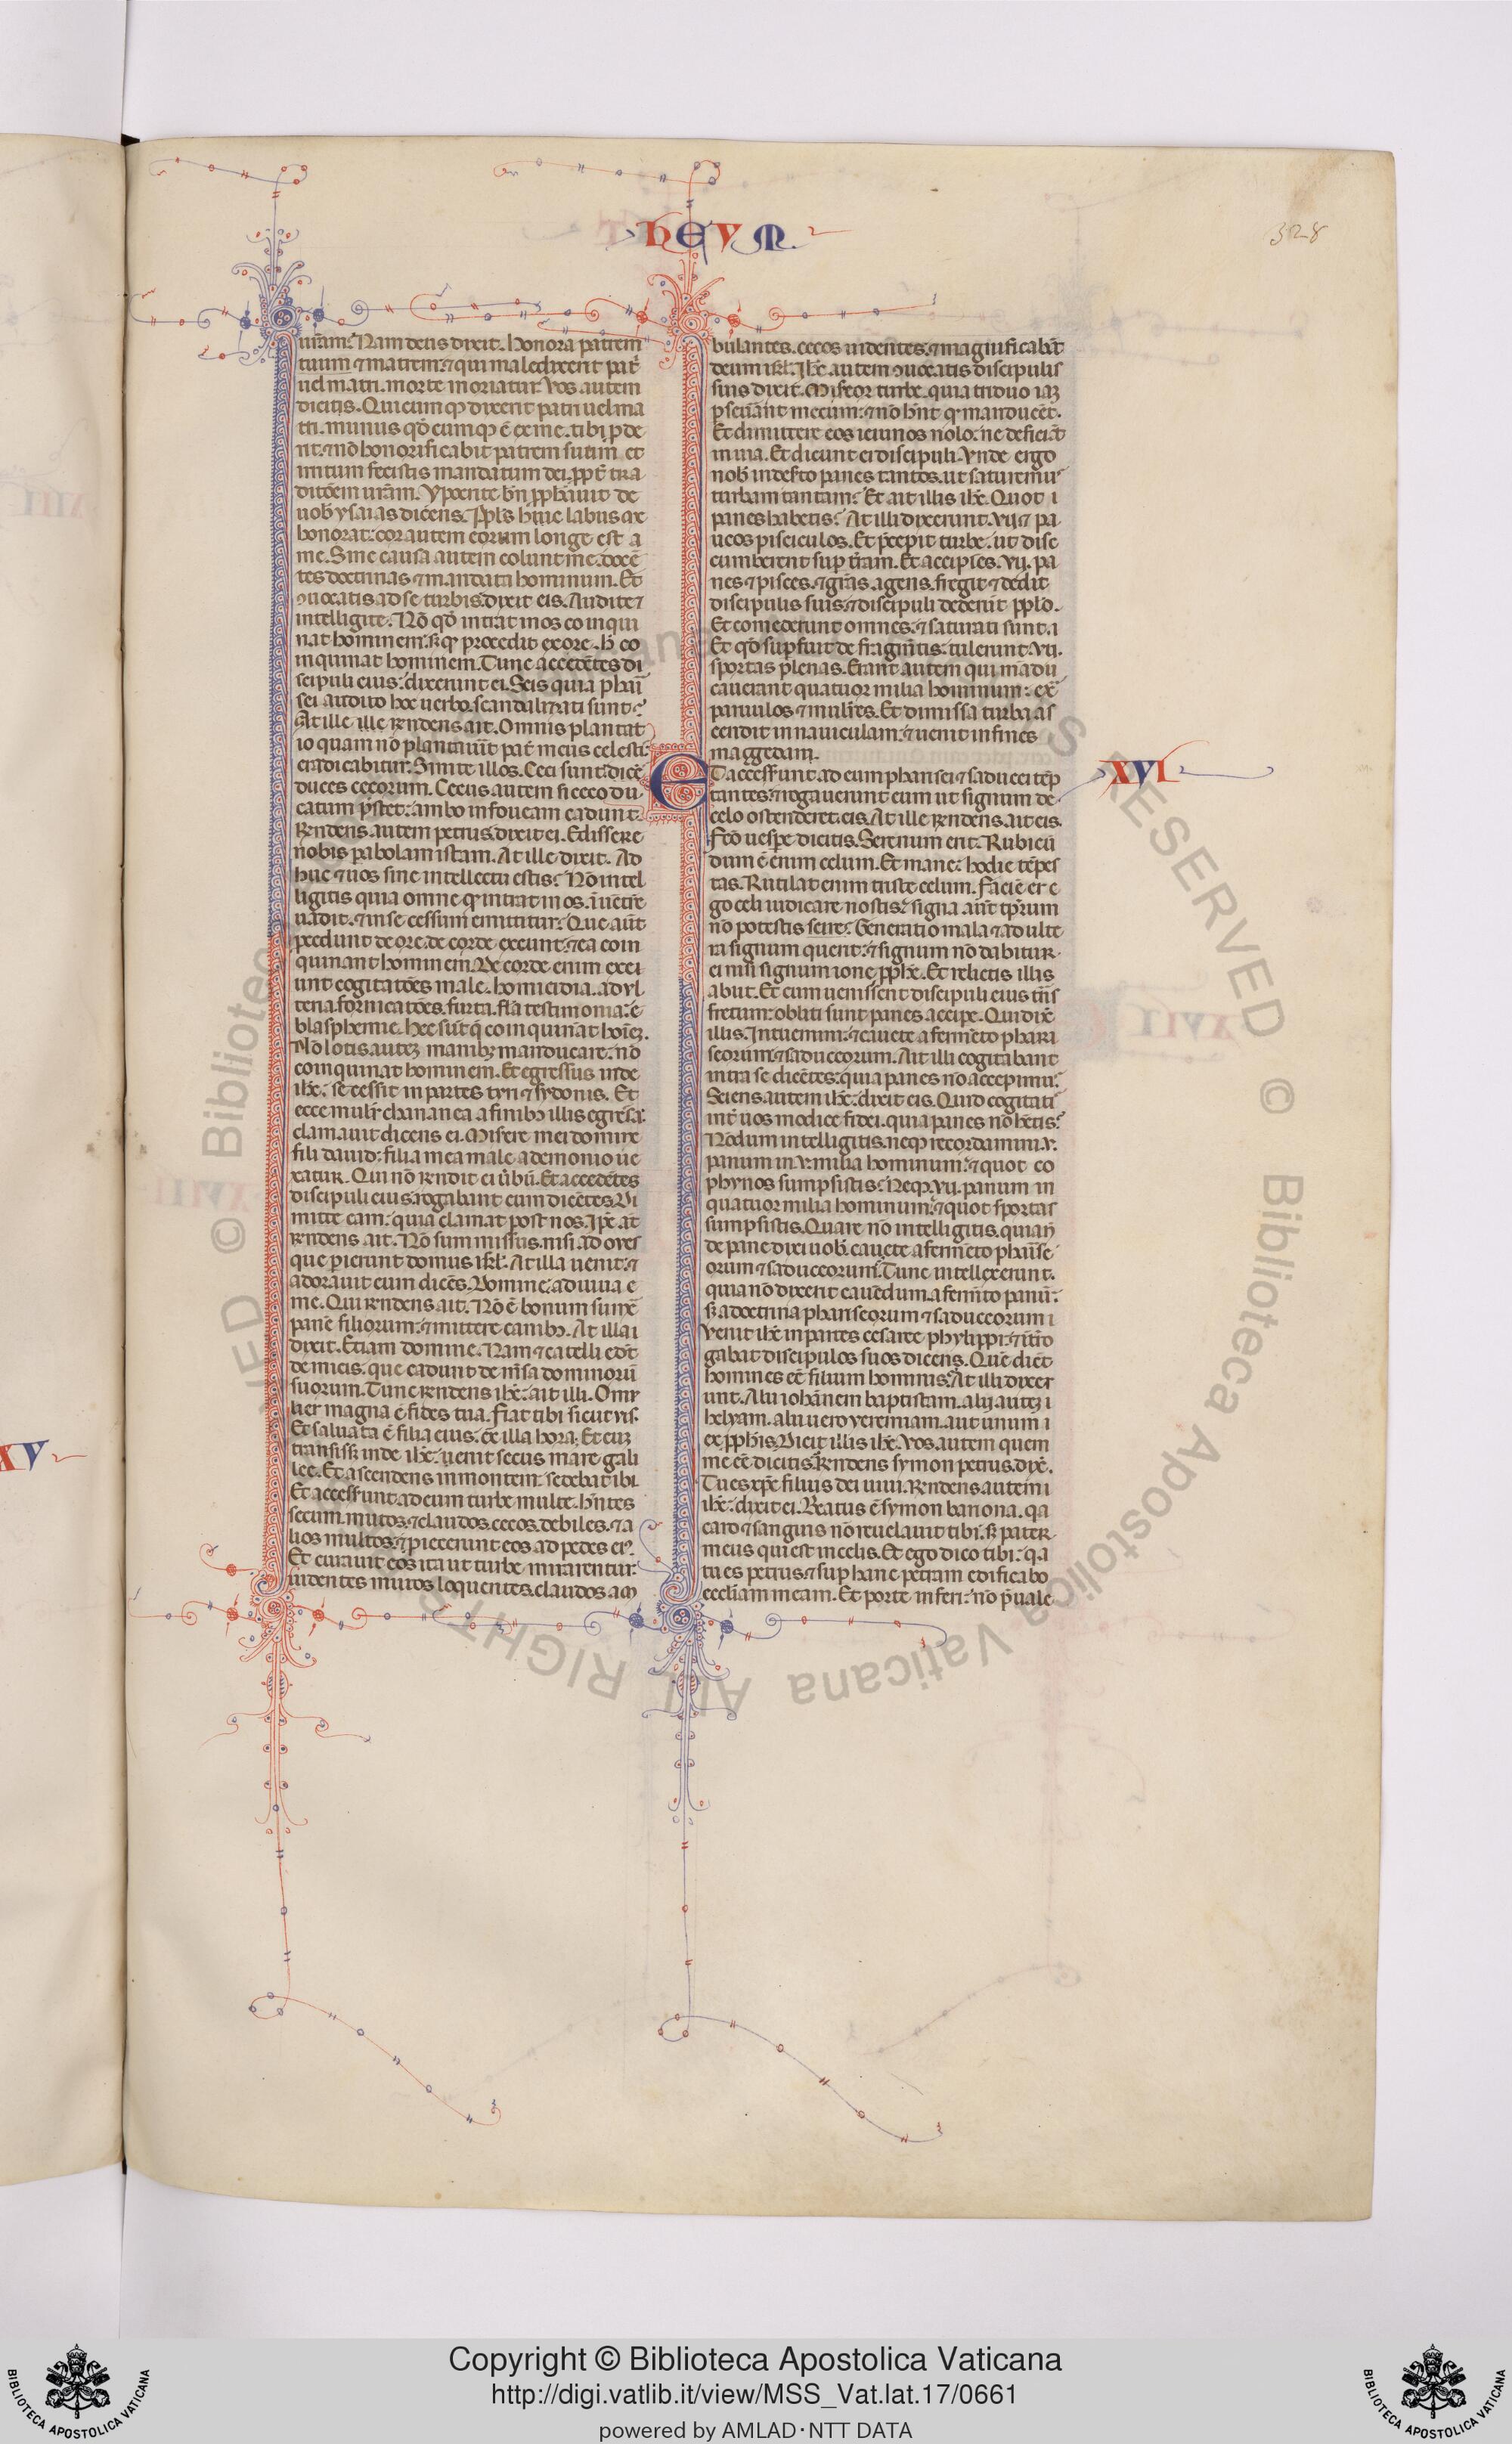 HEVM.
328
uram. Nam deus dixit. honora patrem
tuum ⁊ matrem. ⁊ qui maledixerit pat̉
uel matri. morte moriatur. Vos autem
dicitis. Quicumq̄ dixerit patri uel ma
tri. munus qd̄ cumq̄ ē ex me. tibi p̱de
rit. ⁊ nō honorificabit patrem suum et
irritum fecistis mandatum dei. ꝓpt̉ tra
ditōem urām. Ypocrite bn̄ ꝓphauit de
uob̄ ysaias dicens. Ppl̄s hic labiis me
honorat. cor autem eorum longe est a
me. Sine causa autem colunt me. docē
tes doctrinas ⁊ mandata hominum. Et
ꝯuocatis ad se turbis. dixit eis. Audite ⁊
intelligite. Nō qd̄ intrat in os coinqui
nat hominem. s; qd̄ procedit ex ore. h̄ co
inquinat hominem. Tunc accedētes di
scipuli eius. dixerunt ei. Scis quia phari
sei audito hoc uerbo. scandalizati sunt.
At ille ille rn̄dens ait. Omnis plantat
io quam nō plantauit pat̉ meus celestis
eradicabitur. Sinite illos. Ceci sunt. dice
duces cecorum. Cecus autem si ceco du
catum p̄stet. ambo in foueam cadunt.
Rn̄dens autem petrus dixit ei. Edissere
nobis parabolam istam. At ille dixit. Ad
huc ⁊ uos sine intellectu estis. Nō intel
ligitis quia omne qd̄ intrat in os. ī uētrē
uadit. ⁊ in secessum emittitur. Que aūt
ꝓcedunt de ore. de corde exeunt. ⁊ ea coin
quinant hominem. De corde enim exei
unt cogitatōes male. homicidia. adul
teria. fornicatōes. furta. fl̄a testimonia. ē
blasphemie. hec sūt q̄ coinquināt hoīez.
Nō lotis autez manibꝫ manducare. nō
coinquinat hominem. Et egressus inde
ihc̄. secessit in partes tyri ⁊ sydonis. Et
ecce muli̓ chananea a finibꝫ illis egressa.
clamauit dicens ei. Miserere mei domine
fili dauid. filia mea male a demonio ue
xatur. Qui nō rn̄dit ei ūbū. Et accedētes
discipuli eius. rogabant eum dicētes. Di
mitte eam. quia clamat post nos. Ip̄e at̄
rn̄dens ait. Nō sum missus. nisi ad oues
que perierunt domus isrl̄. At illa uenit. ⁊
adorauit eum dicēs. Domine. adiuua e
me. Qui rn̄dens ait. Nō ē bonum sumē
panē filiorum. ⁊ mittere canibꝫ. At illa i
dixit. Etiam domine. Nam ⁊ catelli edūt
de micis. que cadunt de mēsa dominorū
suorum. Tunc rn̄dens ihc̄. ait illi. O mu
lier magna ē fides tua. Fiat tibi sicut uis.
Et saluata ē filia eius. ex illa hora. Et cuz
transisst̄ inde ihc̄. uenit secus mare gali
lee. Et ascendens in montem. sedebat ibi
Et accessunt ad eum turbe multe. hn̄tes
secum. mutos. ⁊ claudos. cecos. debiles. ⁊ a
lios multos. ⁊ ꝓiecerunt eos ad pedes ei.
Et curauit eos ita ut turbe mirarentur.
uidentes mutos loquentes. claudos am
bulantes. cecos uidentes. ⁊ magnificabāt
deum isrl̄. Ihc̄ autem ꝯuocatis discipulis
suis dixit. Misereor turbe. quia triduo iaz
ꝑseuāut mecum. ⁊ nō hn̄t qd̄ manducēt.
Et dimittere eos ieiunos nolo. ne deficiāt
in uia. Et dicunt ei discipuli. Vnde ergo
nob̄ in deserto panes tantos. ut saturemus
turbam tantam. Et ait illis ihc̄. Quot i
panes habetis. At illi dixerunt. vij. ⁊ pa
ucos pisciculos. Et p̄cepit turbe. ut disc
cumberent sup̱ tr̄am. Et accipiēs. vij. pa
nes ⁊ pisces. ⁊ grās agens. fregit ⁊ dedit
discipulis suis. ⁊ discipuli dederūt ppl̄o.
Et comederunt omnes. ⁊ saturati sunt. i
Et qd̄ sup̱fuit de fragmn̄tis. tulerunt vij.
sportas plenas. Erant autem qui mādu
cauerant quatuor milia hominum. exᵃ
paruulos ⁊ mulīes. Et dimissa turba as
cendit in nauiculam. ⁊ uenit in fines
maggedam.
ET accessunt ad eum pharisei ⁊ saducei tēp
XVI
tantes. ⁊ rogauerunt eum ut signum de
celo ostenderet. eis. At ille rn̄dens. ait eis.
Fc̄o uesp̱e dicitis. Serenum erit. Rubicū
dum ē enim celum. Et mane. hodie tēpes
tas. Rutilat enim triste celum. Faciē er e
go celi iudicare nostis. signa aūt tp̄rum
nō potestis scire. Generatio mala ⁊ adulte
ra signum querit. ⁊ signum nō dabitur.
ei nisi signum ione ꝓphe. Et relictis illis
abiit. Et cum uenissent discipuli eius tn̄s
fretum. obliti sunt panes accipe. Qui dix̄
illis. Intuemini. ⁊ cauete a fermēto phari
seorum. ⁊ saduceorum. At illi cogitabant
intra se dicētes. quia panes nō accepimus.
Sciens autem ihc̄. dixit eis. Quid cogitatis
int̉ uos modice fidei. quia panes nō hētis.
Nōdum intelligitis. neqꝫ recordamini. v.
panum in v. milia hominum. ⁊ quot co
phynos sumpsistis. Neqꝫ. vij. panum in
quatuor milia hominum. ⁊ quot sportas
sumpsistis. Quare nō intelligitis. quia n̄
de pane dixi uob̄. cauete a fermēto pharise
orum ⁊ saduceorum. Tunc intellexerunt.
quia nō dixerit cauēdum. a fermēto panū.
s; a doctrina phariseorum ⁊ saduceorum i
Venit ihc̄ in partes cesaree phylippi. ⁊ īt̄ro
gabat discipulos suos dicens. Quē dicūt
homines eē filium hominis. At illi dixer
unt. Alii iohānem baptistam. alij autez i
helyam. alii uero yeremiam. aut unum i
ex ꝓphis. Dicit illis ihc̄. Vos autem quem
me eē dicitis. Rn̄dens symon petrus. dix̄.
Tu es xp̄c filius dei uiui. Rn̄dens autem i
ihc̄. dixit ei. Beatus ē symon bariona. qa
caro ⁊ sanguis nō reuelauit tibi. s; pater
meus qui est in celis. Et ego dico tibi. qa
tu es petrus. ⁊ sup̱ hanc petram edificabo
ecclīam meam. Et porte inferi. nō p̄uale
XV
Copyright © Biblioteca Apostolica Vaticana
http://digi.vatlib.it/view/MSS_Vat.lat.17/0661
powered by AMLAD·NTT DATA
BIBLIOTECA APOSTOLICA VATICANA
BIBLIOTECA APOSTOLICA VATICANA